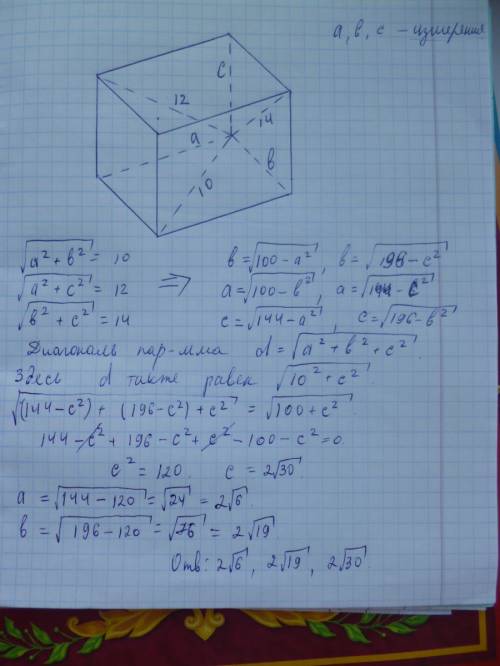 а, в, с – измерения
с
12
14
а
в
10
√(a² + в²) = 10
√(a² + c²) = 12
√(в² + c²) = 14
⇒
в = √(100 - a²), в = √(196 - c²)
a = √(100 - в²), a = √(144 - c²)
c = √(144 - a²), c = √(196 - в²)
Диагональ пар-мма d = √(a² + в² + c²).
Здесь d также равен √(10² + c²).
√((144 - c²) + (196 - c²) + c²) = √(100 + c²)
144 - c² + 196 - c² + c² - 100 - c² = 0
c² = 120. c = 2√30.
a = √(144 - 120) = √24 = 2√6
в = √(196 - 120) = √76 = 2√19
Отв: 2√6, 2√19, 2√30.